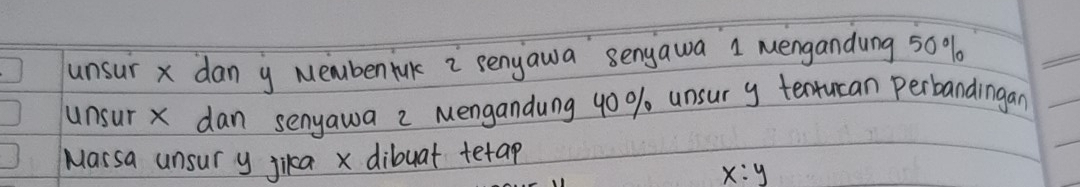 unsur x dan y Membentuk 2 senyawa senyawa 1 Mengandung 50%
unsur x dan senyawa 2 Mengandung 40% unsur y tentukan perbandingan
Massa unsur y jika x dibuat tetap
x:y